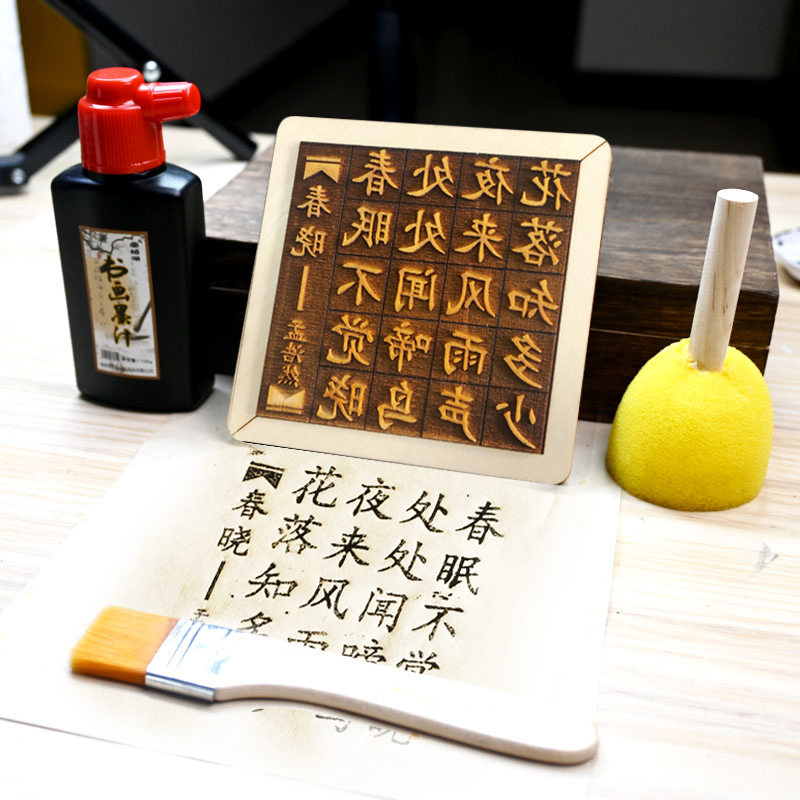 书画墨汁
春晓
孟浩然
春眠不觉晓
处处闻啼鸟
夜来风雨声
花落知多少
春眠不觉晓
处处闻啼鸟
夜来风雨
花落知多
春晓